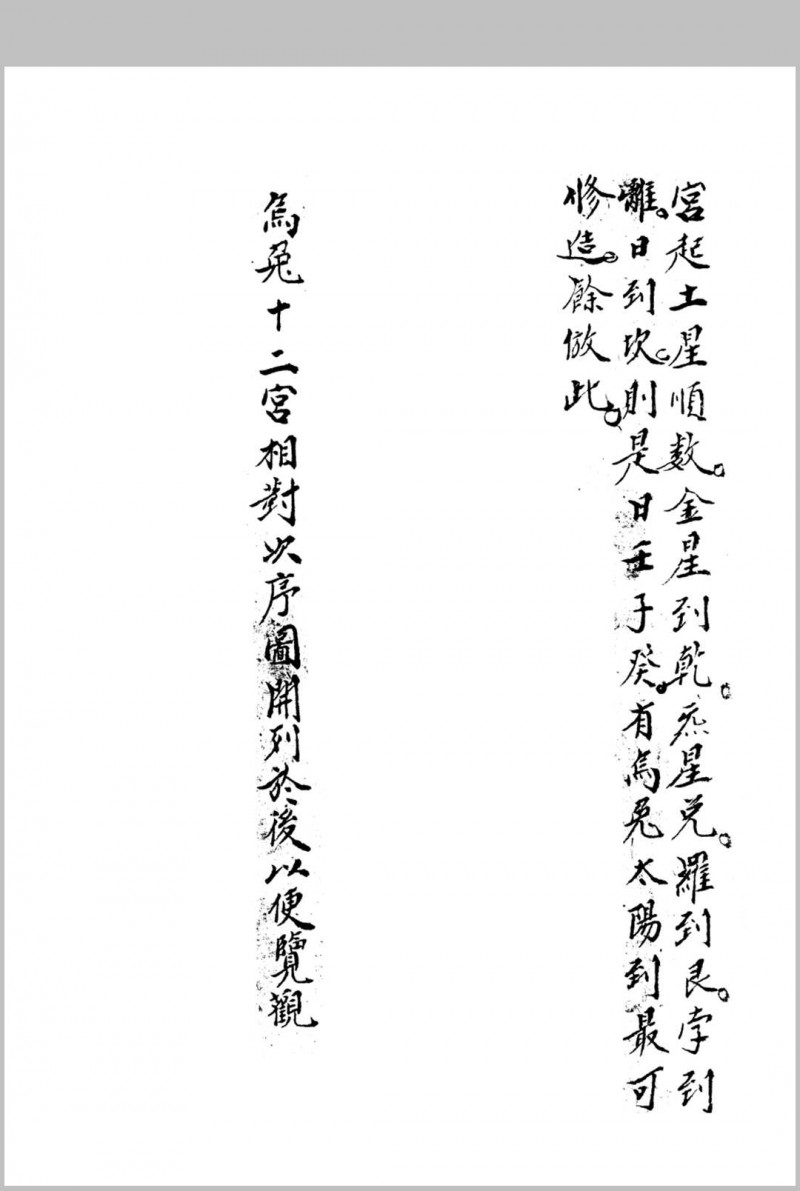 宮起土星順数。金星到乾。炁星兌。羅到艮。孛到
離。日到坎。則是日壬子癸。有烏兎太陽到最可
修造。餘倣此。
烏兎十二宮相對次序圖開列於後以便覽觀